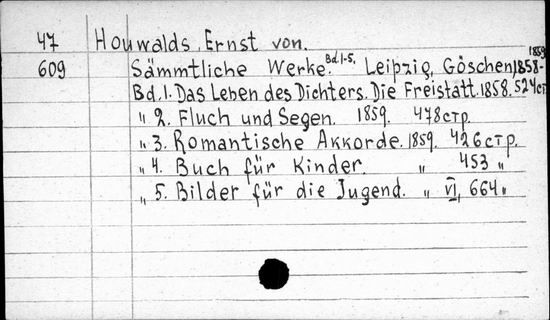 47 Houwalds, Ernst von.
609 Sämmtliche Werke. Bd.1-5. Leipzig, Göschen, 1858-1859
Bd.1. Das Leben des Dichters. Die Freistatt. 1858. 524 ст
" 2. Fluch und Segen. 1859. 478 стр.
" 3. Romantische Akkorde. 1859. 426 стр.
" 4. Buch für Kinder. " 453 "
" 5. Bilder für die Jugend. " VI, 664 "